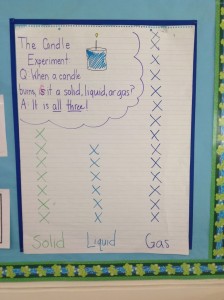 The Candle
Experiment
Q: When a candle
burns, is it a solid, liquid, or gas?
A: It is all three!
Solid Liquid Gas